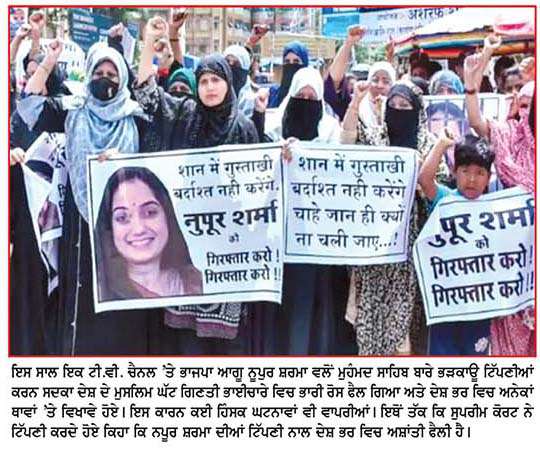 अशरफ
शान में गुस्ताखी
बर्दाश्त नही करेंगे.
नुपूर शर्मा
को
गिरफ्तार करो!
गिरफ्तार करो!!
शान में गुस्ताखी
बर्दाश्त नही करेंगे
चाहे जान ही क्यों
ना चली जाए...!
पुर शर्मा
को
गिरफ्तार करो!
गिरफ्तार करो!!
ਇਸ ਸਾਲ ਇਕ ਟੀ.ਵੀ. ਚੈਨਲ 'ਤੇ ਭਾਜਪਾ ਆਗੂ ਨੂਪੁਰ ਸ਼ਰਮਾ ਵਲੋਂ ਮੁਹੰਮਦ ਸਾਹਿਬ ਬਾਰੇ ਭੜਕਾਊ ਟਿੱਪਣੀਆਂ
ਕਰਨ ਸਦਕਾ ਦੇਸ਼ ਦੇ ਮੁਸਲਿਮ ਘੱਟ ਗਿਣਤੀ ਭਾਈਚਾਰੇ ਵਿਚ ਭਾਰੀ ਰੋਸ ਫੈਲ ਗਿਆ ਅਤੇ ਦੇਸ਼ ਭਰ ਵਿਚ ਅਨੇਕਾਂ
ਥਾਵਾਂ 'ਤੇ ਵਿਖਾਵੇ ਹੋਏ। ਇਸ ਕਾਰਨ ਕਈ ਹਿੰਸਕ ਘਟਨਾਵਾਂ ਵੀ ਵਾਪਰੀਆਂ। ਇਥੋਂ ਤੱਕ ਕਿ ਸੁਪਰੀਮ ਕੋਰਟ ਨੇ
ਟਿੱਪਣੀ ਕਰਦੇ ਹੋਏ ਕਿਹਾ ਕਿ ਨਪੂਰ ਸ਼ਰਮਾ ਦੀਆਂ ਟਿੱਪਣੀ ਨਾਲ ਦੇਸ਼ ਭਰ ਵਿਚ ਅਸ਼ਾਂਤੀ ਫੈਲੀ ਹੈ।